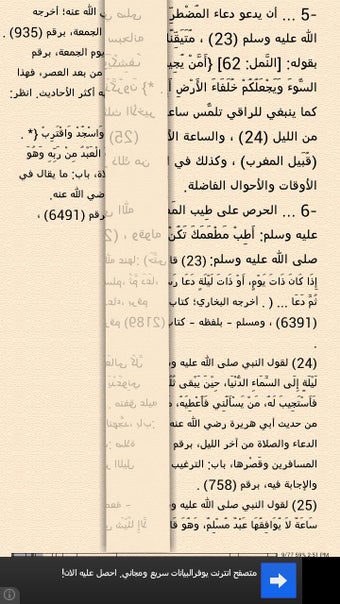 5- ... أن يدعو دعاء المضطرّ
الله عليه وسلم (23) ، متَيقِّنًا
بقوله: [النّمل: 62] {أَمَّنْ يُجِيـ
السُّوءَ وَيَجْعَلُكُمْ خُلَفَاءَ الْأَرْضِ
كما ينبغي للراقي تلمّس ساعـ
من الليل (24) ، والساعة الأ
(قبيل المغرب) ، وكذلك في ا
الأوقات والأحوال الفاضلة.
6- ... الحرص على طيب المـ
عليه وسلم: أَطِبْ مَطْعَمَكَ تَكُنْ
صلى الله عليه وسلم: (23) قا
إِذَا كَانَ ذَاتَ يَوْمٍ، أَوْ ذَاتَ لَيْلَةٍ دَعَا رسـ
ثُمَّ دَعَا ... ( . أخرجه البخاري؛ كتاب
(6391) ، ومسلم - بلفظه - كتاب
.
(24) لقول النبي صلى الله عليه و
لَيْلَةٍ إِلَى السَّمَاءِ الدُّنْيَا، حِينَ يَبْقَى ثُلُـ
فَأَسْتَجِيبَ لَهُ، مَنْ يَسْأَلُنِي فَأُعْطِيَهُ، مـ
من حديث أبي هريرة رضي الله عنه
الدعاء والصلاة من آخر الليل، برقم
المسافرين وقصْرها، باب: الترغيب
والإجابة فيه، برقم (758) .
(25) لقول النبي صلى الله عليه و
سَاعَةٌ لَا يُوَافِقُهَا عَبْدٌ مُسْلِمٌ، وَهُوَ قَا
الله عنه! أخرجه
الجمعة، برقم (935) .
يوم الجمعة، برقم
من بعد العصر، فهذا
ه أكثر الأحاديث. انظر:
وَاسْجُدْ وَاقْتَرِبْ {* .
الْعَبْدُ مِنْ رَبِّهِ وَهُوَ
ة، باب: ما يقال في
ضي الله عنه.
رقم (6491) ،
9/77 59% 2:51 PM
متصفح انترنت يوفرالبيانات سريع ومجاني. احصل عليه الان!